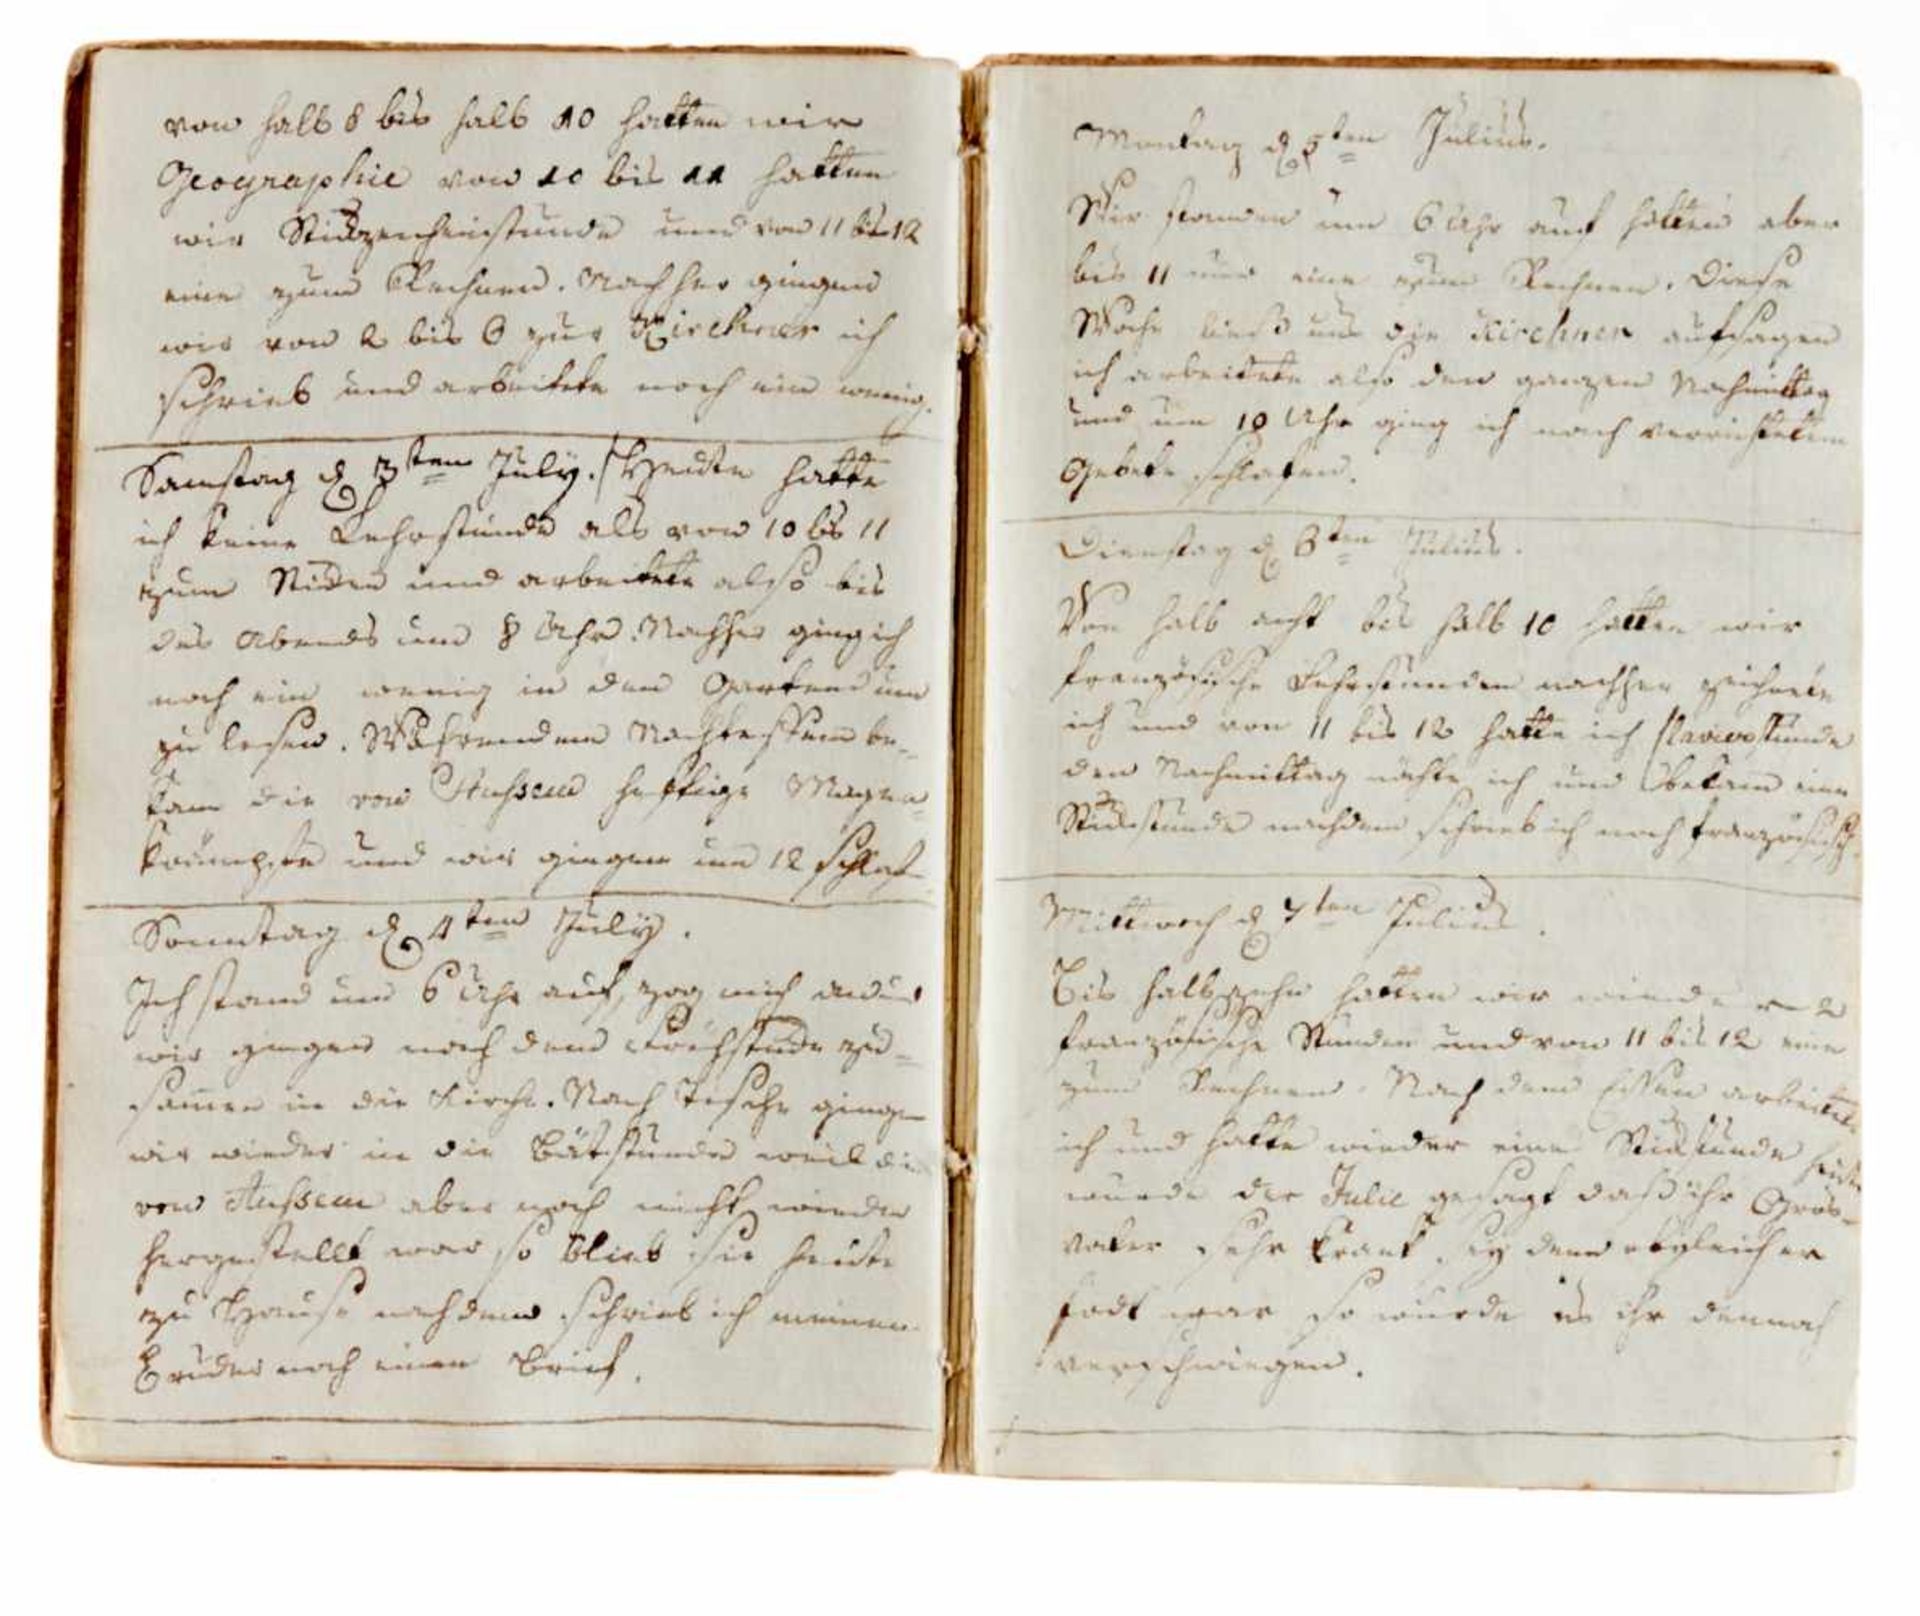 von halb 8 bis halb 10 hatten wir
Geographie von 10 bis 11 hatten
wir und von 11 bis 12
eine zum Rechnen. Nachher gingen
wir von 2 bis 6 zur Kirchner ich
schrieb und arbeitete noch ein wenig.
Samstag d 3ten July. / Heute hatte
ich keine Lehrstunde als von 10 bis 11
zum und arbeitete also bis
des Abends um 8 Uhr. Nachher ging ich
noch ein wenig in den Garten um
zu lesen. Währendem Nachtessen be-
kam die von heftige Magen
krämpfe und wir gingen um 12 schlaf
Sonntag d 4ten July.
Ich stand um 6 Uhr auf, zog mich an und
wir gingen nach dem zu-
samen in die Kirche. Nach Tische gingen
wir wieder in die Bätstunde weil die
von aber noch nicht wieder
hergestellt war so blieb sie heute
zu Hause nachdem schrieb ich meinem
Bruder noch einen Brief.
Montag d 5ten Julius.
Wir standen um 6 Uhr auf hatten aber
bis 11 nur eine zum Rechnen. Diese
Woche ließ uns die Kirchner aufsagen
ich arbeitete also den ganzen Nachmittag
und um 10 Uhr ging ich nach verrichtetem
Gebete schlafen.
Dienstag d 6ten Julius.
Von halb acht bis halb 10 hatten wir
französische Lehrstunden nachher zeichnete
ich und von 11 bis 12 hatte ich Klavierstunde
den Nachmittag nähte ich und bekam eine
nachdem schrieb ich noch französisch
Mittwoch d 7ten Julius.
Bis halb zehn hatten wir wieder 2
französische Stunden und von 11 bis 12 eine
zum Rechnen. Nach dem Essen arbeitete
ich und hatte wieder eine heute
wurde der Julie gesagt daß ihr Gros-
vater sehr krank sey denn obgleich er
todt war so wurde es ihr dennoch
verschwiegen.